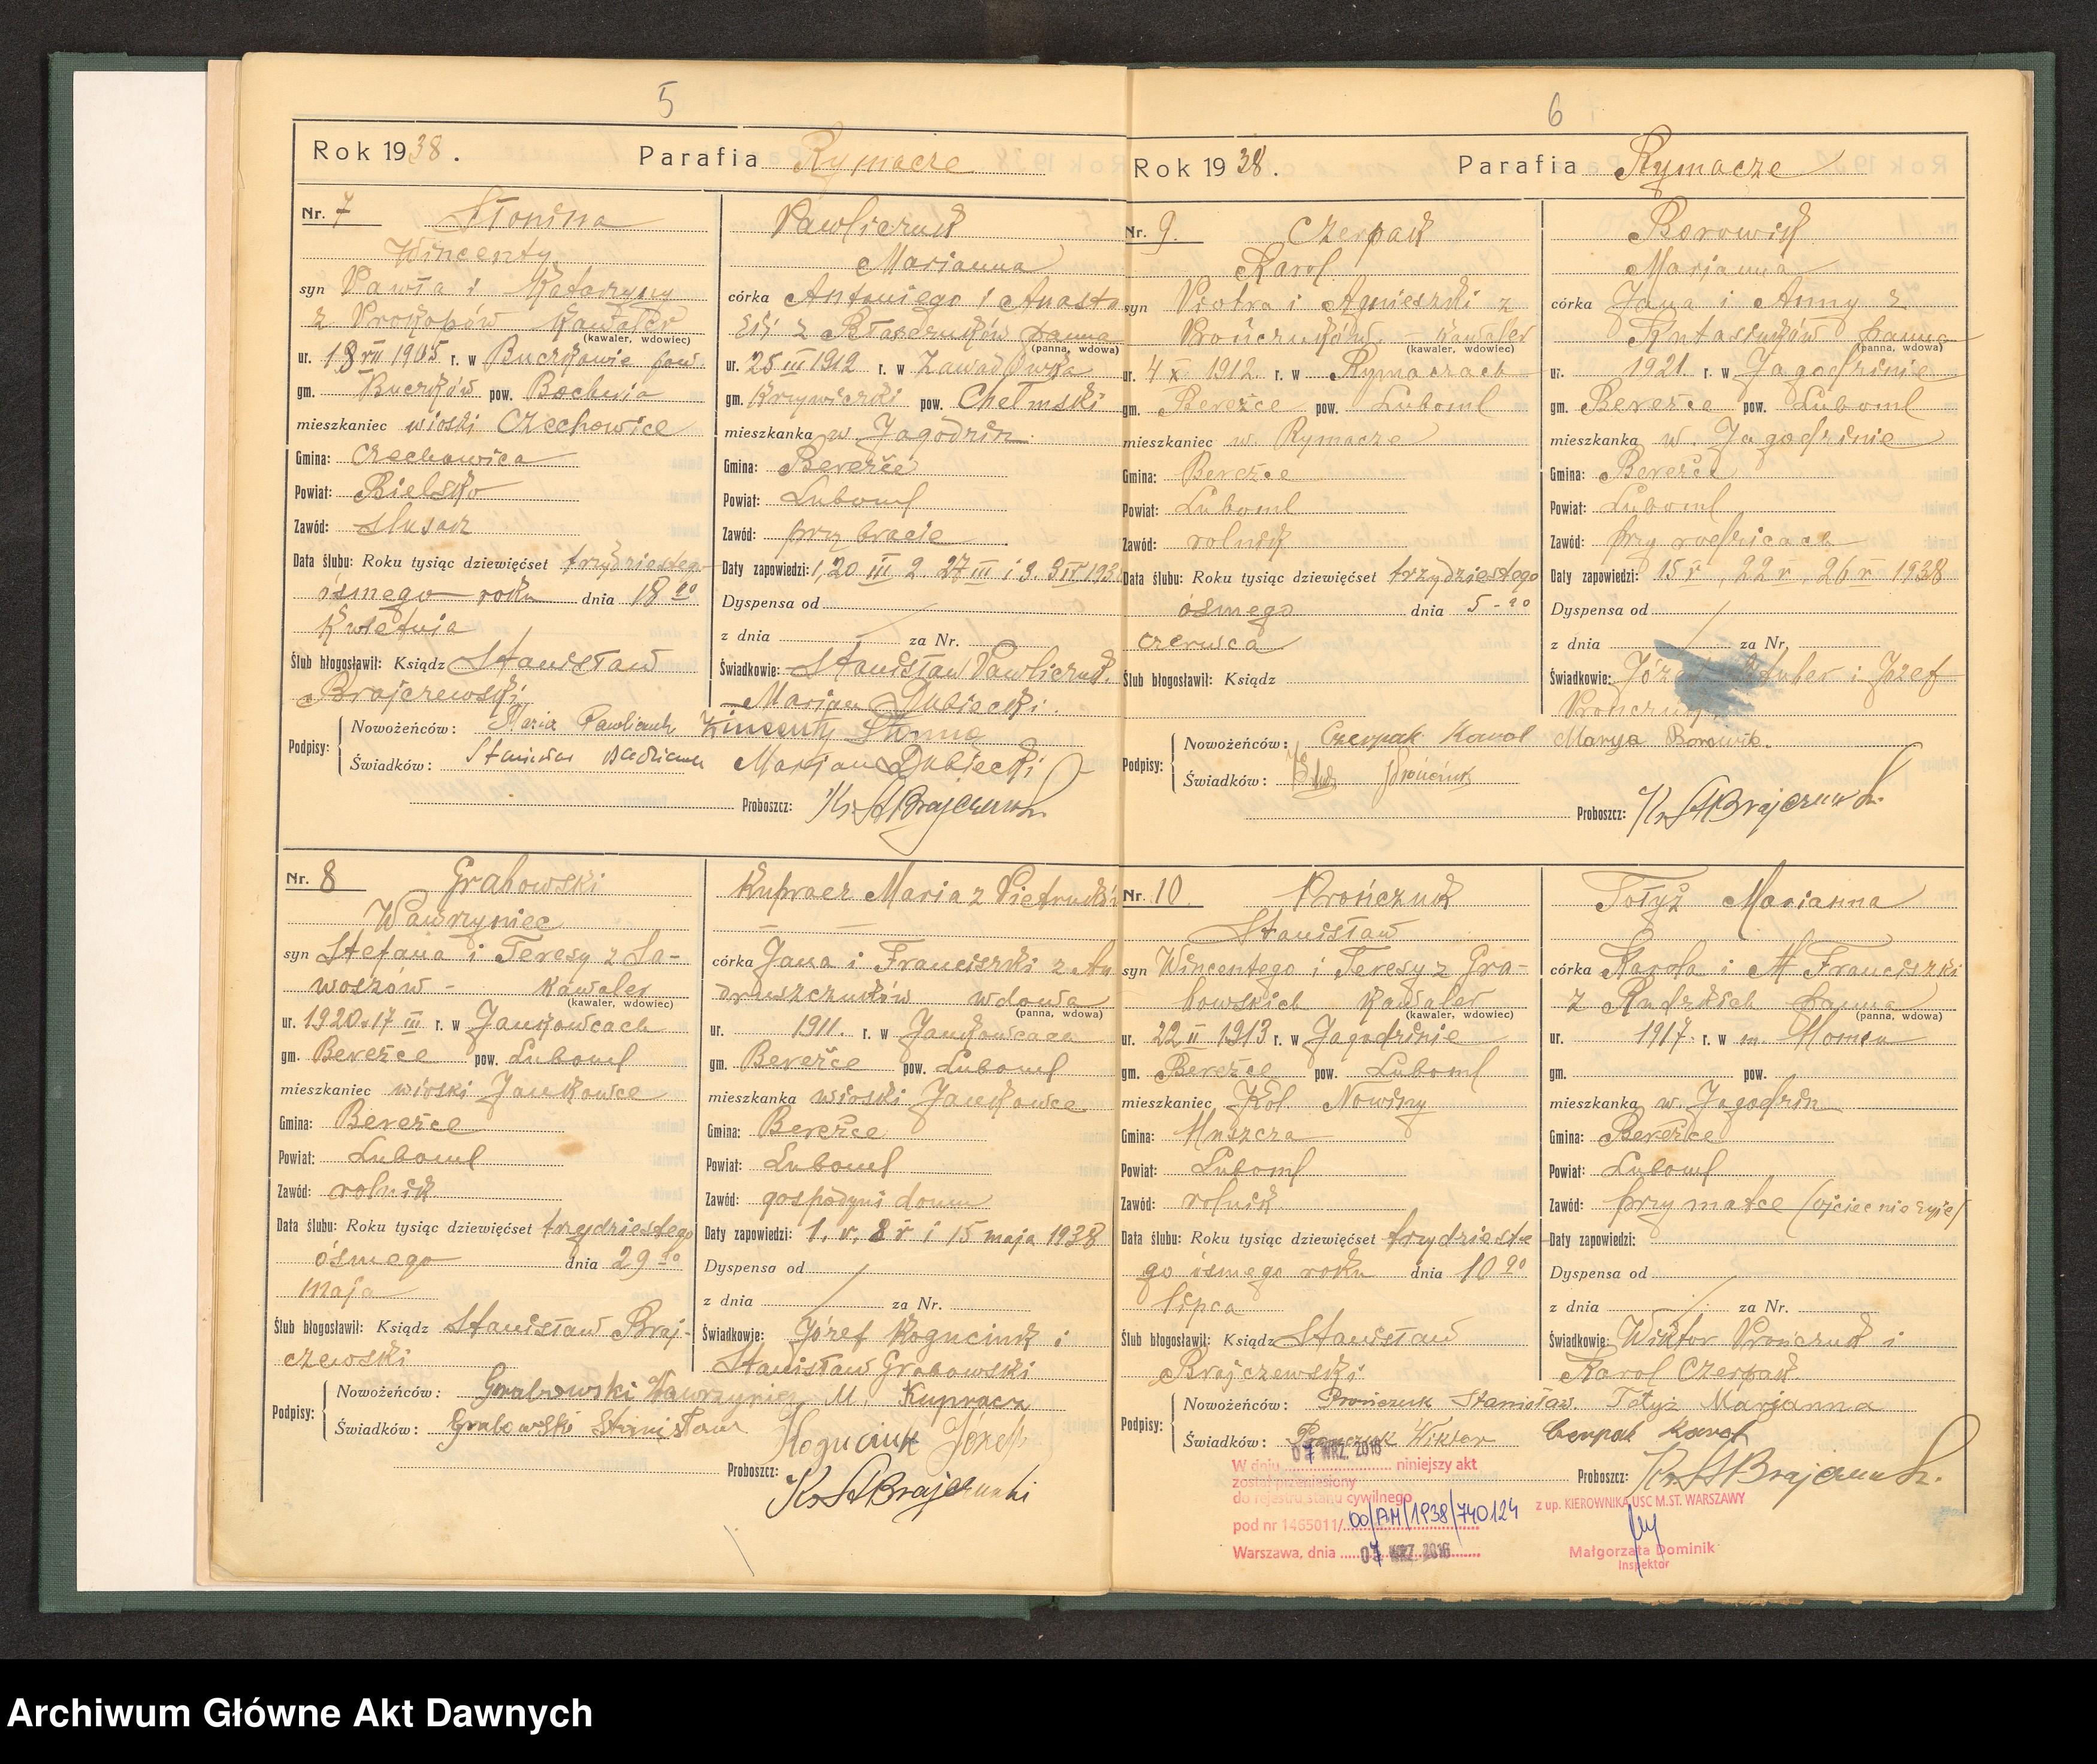 5
Rok 1938.
Parafia Rymacze
Nr. 7 Słonina
Wincenty
syn Pawła i Katarzyny
z Prokopów kawaler
(kawaler, wdowiec)
ur. 18 VII 1905 r. w Buczkowie pow.
gm. Buczków pow. Bochnia
mieszkaniec wioski Czechowice
Gmina: Czechowice
Powiat: Bielsko
Zawód: ślusarz
Data ślubu: Roku tysiąc dziewięćset trzydziestego
ósmego roku dnia 18 go
Kwietnia
Ślub błogosławił: Ksiądz Stanisław
Brajczewski
Pawliczuk
Marianna
córka Antoniego i Anasta
zii z Błaszczuków panna
(panna, wdowa)
ur. 25 III 1912 r. w Zawadówka
gm. Krzywiczki pow. Chełmski
mieszkanka w Jagodzin
Gmina: Bereżce
Powiat: Luboml
Zawód: przy bracie
Daty zapowiedzi: 1, 20 III 2. 27 III i 3. 3 IV 1938
Dyspensa od
z dnia za Nr.
Świadkowie: Stanisław Pawliczuk.
Marjan Dubiecki.
Podpisy:
Nowożeńców: Maria Pawliczuk Wincenty Słonina
Świadków: Stanisław Marjan Dubiecki
Proboszcz: Ks. St Brajczewski
Nr. 8 Grabowski
Wawrzyniec
syn Stefana i Teresy z Sa-
woszów - kawaler
(kawaler, wdowiec)
ur. 1920. 17 III r. w Jankowcach
gm. Bereżce pow. Luboml
mieszkaniec wioski Jankowce
Gmina: Bereżce
Powiat: Luboml
Zawód: rolnik
Data ślubu: Roku tysiąc dziewięćset trzydziestego
ósmego dnia 29 go
maja
Ślub błogosławił: Ksiądz Stanisław Braj-
czewski
Kupracz Maria z Pietruków
córka Jana i Franciszki z An
druszczuków wdowa
(panna, wdowa)
ur. 1911. r. w Jankowcach
gm. Bereżce pow. Luboml
mieszkanka wioski Jankowce
Gmina: Bereżce
Powiat: Luboml
Zawód: gospodyni domu
Daty zapowiedzi: 1. V, 8 V i 15 maja 1938
Dyspensa od
z dnia za Nr.
Świadkowie: Józef Koguciuk i
Stanisław Grabowski
Podpisy:
Nowożeńców: Grabowski Wawrzyniec M. Kupracz
Świadków: Grabowski Stanisław Koguciuk Józef
Proboszcz: Ks St Brajczewski
6
Rok 1938.
Parafia Rymacze
Nr. 9. Czerpak
Karol
syn Piotra i Agnieszki z
Prończuków - kawaler
(kawaler, wdowiec)
ur. 4 X 1912 r. w Rymaczach
gm. Bereżce pow. Luboml
mieszkaniec w. Rymacze
Gmina: Bereżce
Powiat: Luboml
Zawód: rolnik
Data ślubu: Roku tysiąc dziewięćset trzydziestego
ósmego dnia 5-go
czerwca
Ślub błogosławił: Ksiądz
Borowik
Marianna
córka Jana i Anny z
panna
(panna, wdowa)
ur. 1921. r. w Jagodzinie
gm. Bereżce pow. Luboml
mieszkanka w. Jagodzinie
Gmina: Bereżce
Powiat: Luboml
Zawód: przy rodzicach
Daty zapowiedzi: 15 V, 22 V, 26 V 1938
Dyspensa od
z dnia za Nr.
Świadkowie: i Józef
Prończuk
Podpisy:
Nowożeńców: Czerpak Karol Marya Borowik.
Świadków: Prończuk
Proboszcz: Ks St Brajczewski.
Nr. 10 Prończuk
Stanisław
syn Wincentego i Teresy z Gra-
bowskich kawaler
(kawaler, wdowiec)
ur. 22 II 1913 r. w Jagodzinie
gm. Bereżce pow. Luboml
mieszkaniec Kol. Nowiny
Gmina: Huszcza
Powiat: Luboml
Zawód: rolnik.
Data ślubu: Roku tysiąc dziewięćset trzydzieste
go ósmego roku dnia 10 go
lipca
Ślub błogosławił: Ksiądz Stanisław
Brajczewski
Tołyż Marianna
córka Karola i Franciszki
z Rudzkich panna
(panna, wdowa)
ur. 1917. r. w m. Homlu
gm. pow.
mieszkanka w. Jagodzin
Gmina: Bereżce
Powiat: Luboml
Zawód: przy matce (ojciec nie żyje)
Daty zapowiedzi:
Dyspensa od
z dnia za Nr.
Świadkowie: Wiktor Prończuk i
Karol Czerpak.
Podpisy:
Nowożeńców: Prończuk Stanisław. Tołyż Marjanna
Świadków: Prończuk Wiktor Czerpak Karol
Proboszcz: Ks St Brajczewski.
W dniu 07 WRZ. 2016 niniejszy akt
został przeniesiony
do rejestru stanu cywilnego
pod nr 1465011/00/AM/1938/740124
Warszawa, dnia 07 WRZ. 2016
z up. KIEROWNIKA USC M.ST. WARSZAWY
Małgorzata Dominik
Inspektor
Archiwum Główne Akt Dawnych